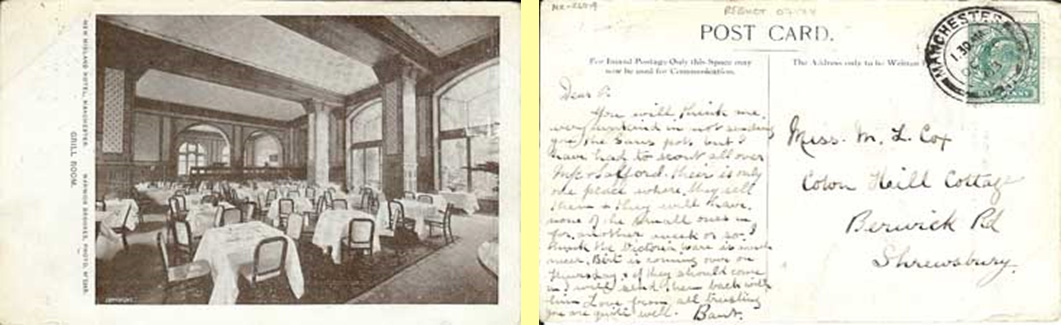 NEW MIDLAND HOTEL, MANCHESTER.
WARWICK BROOKES, PHOTO, M'CHR.
GRILL ROOM.
COPYRIGHT
POST CARD.
For Inland Postage Only this Space may
now be used for Communication.
The Address only to be Written
MANCHESTER
1.30 PM
Dear
You will think me
very unkind in not sending
you the pots but I
have had to scout all over
M/c & Salford. Their is only
one peace where they sell
them & they will have
none of the small ones in
for another week or so. I
think the Victoria ware is much
nicer. Bert is coming over on
Thursday & if they should come
in I will send them back with
him Love from all trusting
you are quite well.
Miss. M. L. Cox
Coton Hill Cottage
Berwick Rd
Shrewsbury.